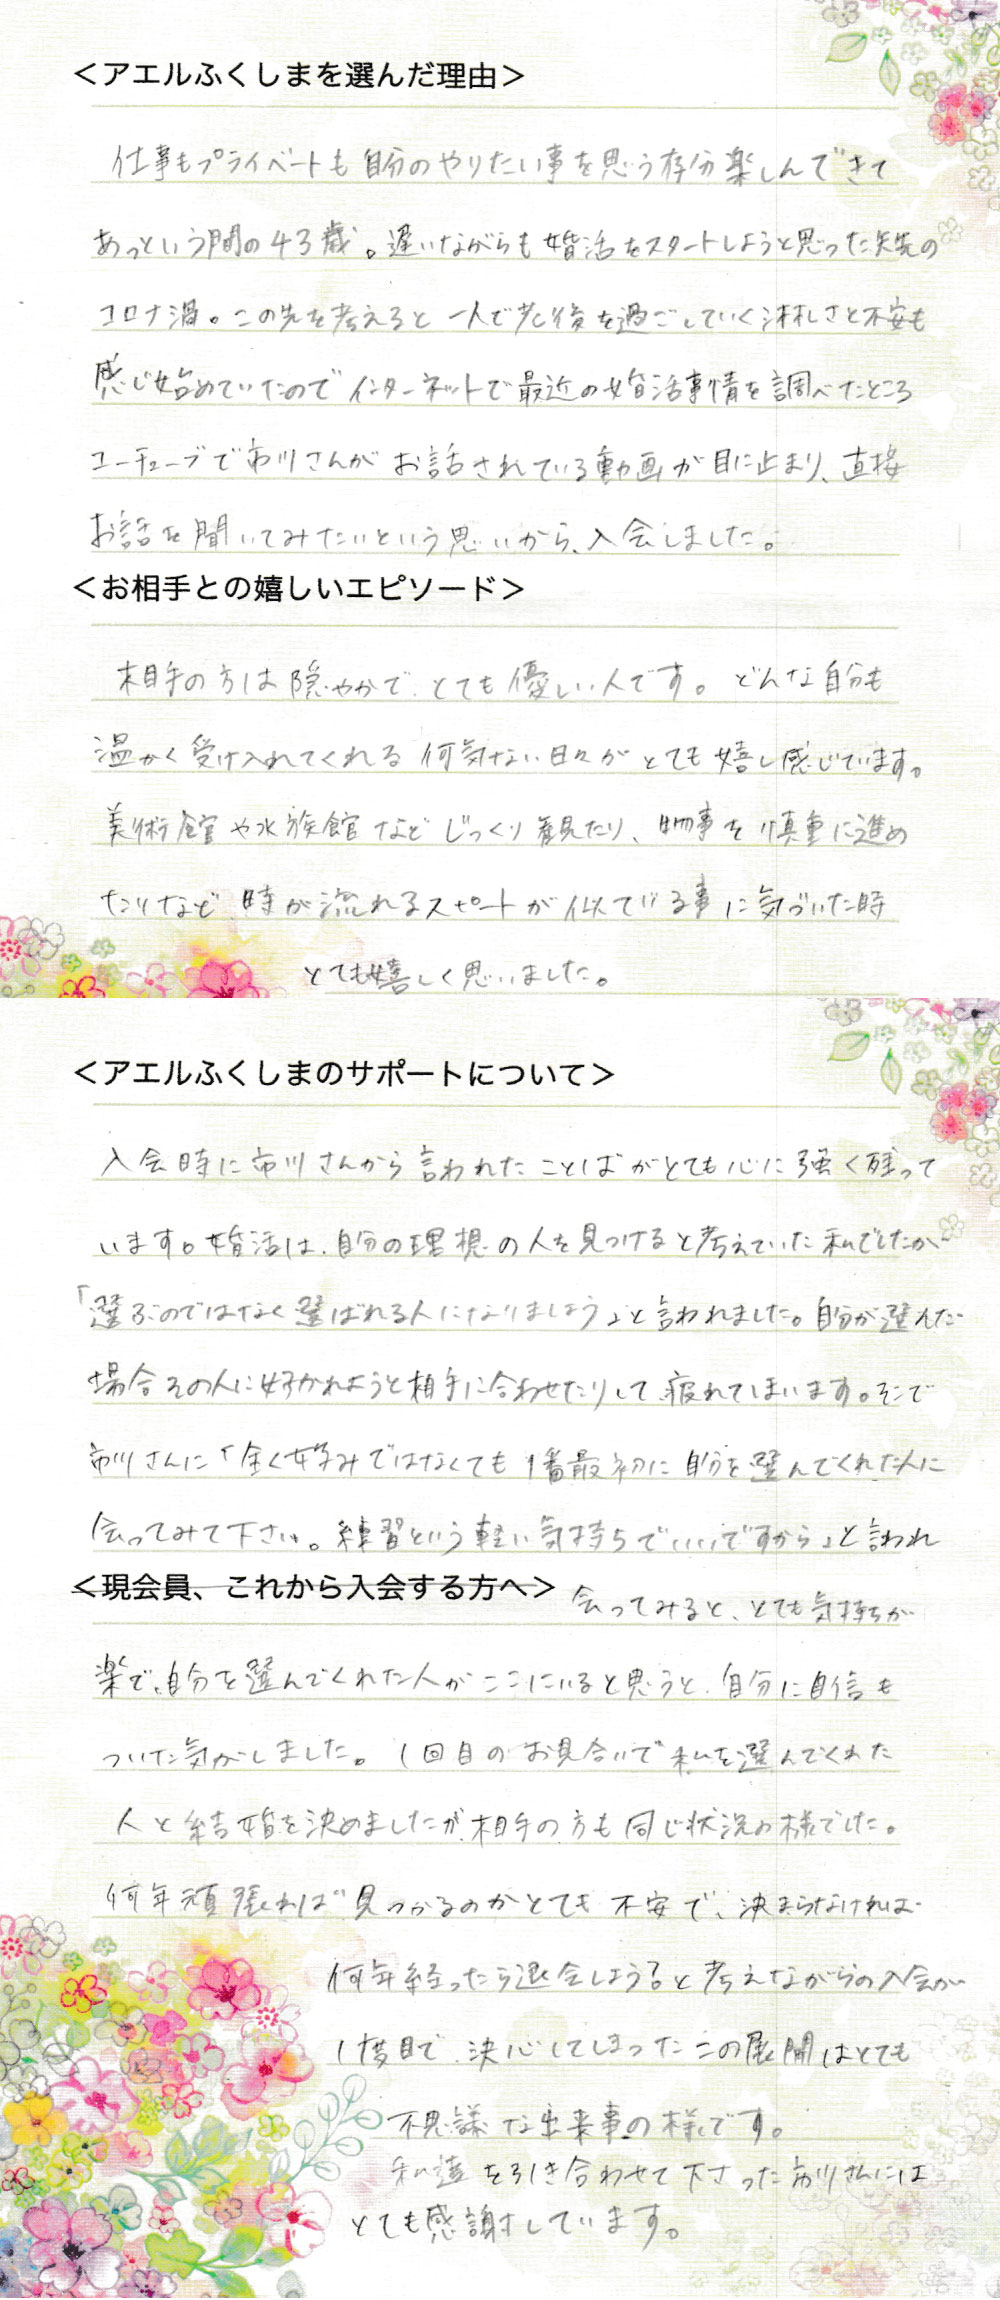 ＜アエルふくしまを選んだ理由＞
仕事もプライベートも自分のやりたい事を思う存分楽しんできて
あっという間の43歳。遅いながらも婚活をスタートしようと思った矢先の
コロナ渦。この先を考えると一人で老後を過ごしていく淋しさと不安も
感じ始めていたのでインターネットで最近の婚活事情を調べたところ
ユーチューブで市川さんがお話されている動画が目に止まり、直接
お話を聞いてみたいという思いから、入会しました。
＜お相手との嬉しいエピソード＞
相手の方は隠やかで、とても優しい人です。どんな自分も
温かく受け入れてくれる何気ない日々がとても嬉し感じています。
美術館や水族館などじっくり観たり、物事を慎重に進め
たりなど、時が流れるスピートが似ている事に気づいた時
とても嬉しく思いました。
＜アエルふくしまのサポートについて＞
入会時に市川さんから言われたことばがとても心に強く残って
います。婚活は、自分の理想の人を見つけると考えていた私でしたが
「選ぶのではなく選ばれる人になりましょう」と言われました。自分が選んだ
場合その人に好かれようと相手に合わせたりして、疲れてしまいます。そこで
市川さんに「全く好みではなくても1番最初に自分を選んでくれた人に
会ってみて下さい。練習という軽い気持ちでいいですから」と言われ
＜現会員、これから入会する方へ＞
会ってみると、とても気持ちが
楽で、自分を選んでくれた人がここにいると思うと、自分に自信も
ついた気がしました。1回目のお見合いで私を選んでくれた
人と結婚を決めましたが、相手の方も同じ状況の様でした。
何年頑張れば見つかるのかとても不安で、決まらなければ
何年経ったら退会しようと考えながらの入会が
1度目で、決心してしまったこの展開はとても
不思議な出来事の様です。
私達を引き合わせて下さった市川さんには
とても感謝しています。